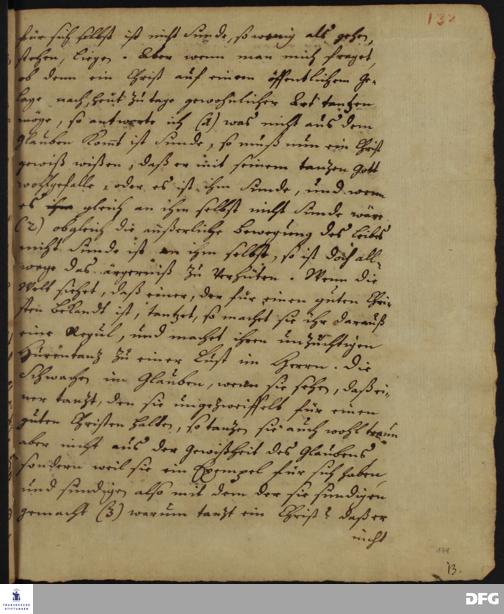 132
für sich selbst ist nicht Sünde, so wenig als gehen,
stehen, liegen. Aber wenn man mich fraget,
ob denn ein Christ auf einem öffentlichem Ge-
lage nach heut zu tage gewöhnlicher Art tantzen
möge, so antworte ich (1) was nicht aus dem
Glauben komt ist Sünde, so muß nun ein Christ
gewiß wißen, daß er mit seinem tantzen Gott
wohlgefalle, oder es ist ihm Sünde, und wenn
es gleich an ihm selbst nicht Sünde wäre
(2) obgleich die äußerliche Bewegung des Leibes
nicht Sünde ist an ihm selbst, so ist doch all-
wege das ärgerniß zu verhüten. Wenn die
Welt siehet, daß einer, der für einen guten Chri-
sten bekandt ist, tantzet, so machet sie ihr darauß
eine Regul, und machet ihren unzüchtigen
Hurentantz zu einer Lust im Herren. Die
Schwachen im Glauben, wenn sie sehen, daß ei-
ner tantzt, den sie ungezweiffelt für einen
guten Christen halten, so tantzen sie auch wohl
aber nicht aus der Gewißheit des Glaubens
sondern weil sie ein Exempel für sich haben
und sündigen also mit dem der sie sündigen
gemacht (3) warum tantzt ein Christ? daß er
nicht
13.
FRANCKESCHE STIFTUNGEN
DFG